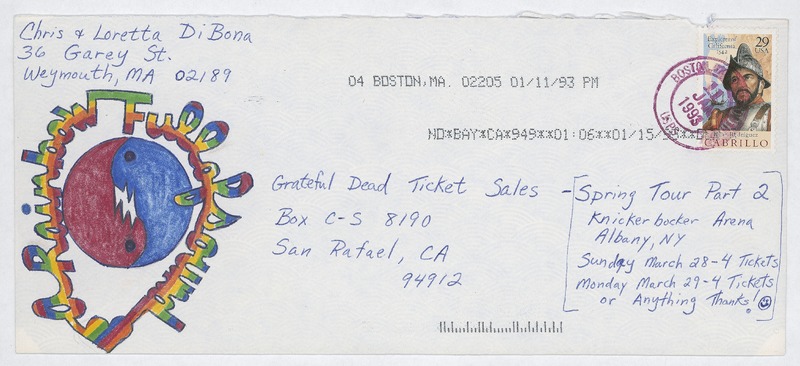 Chris & Loretta DiBona
36 Garey St.
Weymouth, MA 02189
04 BOSTON, MA. 02205 01/11/93 PM
BOSTON
1993
USPS
Exploration of
California
1542
29
USA
CABRILLO
ND*BAY*CA*949**01:06**01/15/
a Rainbow Full of Sound
Grateful Dead Ticket Sales -
Box C-S 8190
San Rafael, CA
94912
Spring Tour Part 2
Knickerbocker Arena
Albany, NY
Sunday March 28-4 Tickets
Monday March 29-4 Tickets
or Anything Thanks!